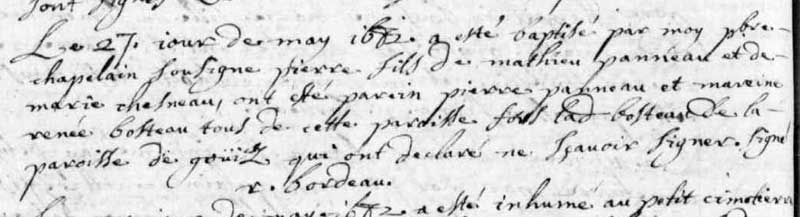 sont signés
Le 27. jour de may 1682 a esté baptisé par moy pbre
chapelain soussigne pierre fils de mathieu panneau et de
marie chesneau, ont esté parein pierre panneau et mareine
renée bosteau tous de cette paroisse fors lad bosteau de la
paroisse de goüiz qui ont declaré ne sçavoir signer. signé
r. bordeau.
1682 a esté inhumé au petit cimetiere